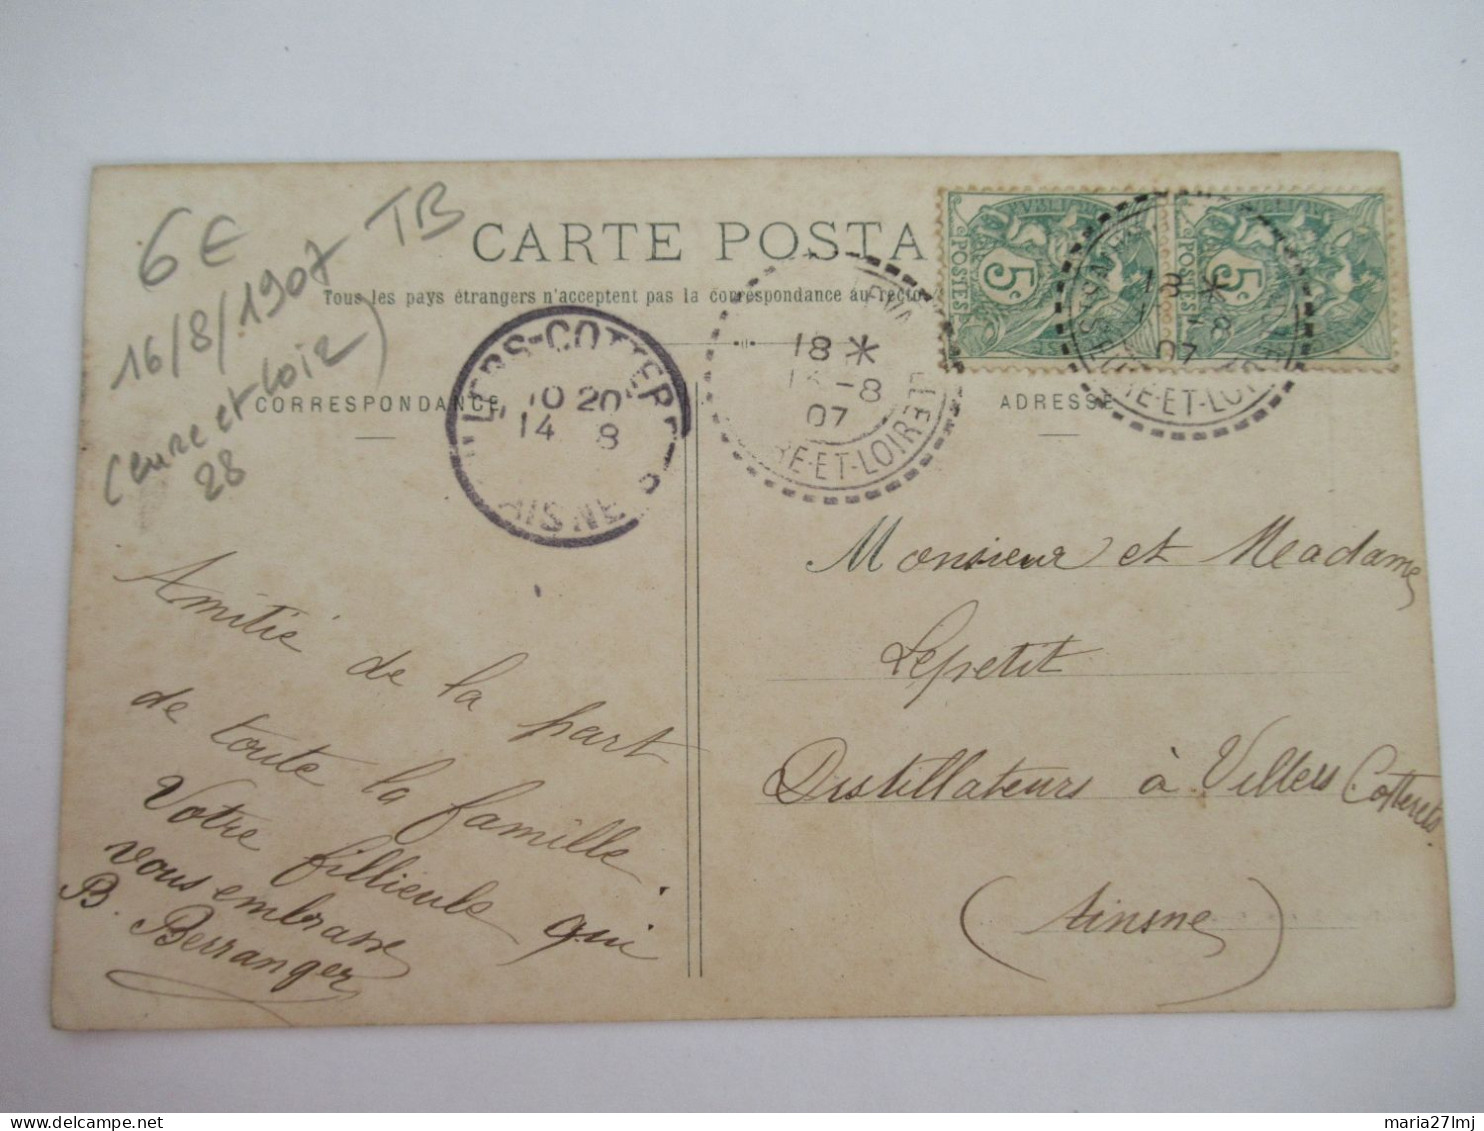 6€
16/8/1907 TB
(eure et loir)
28
CARTE POSTA
Tous les pays étrangers n'acceptent pas la correspondance au recto
CORRESPONDANCE
ADRESSE
LERS-COTTER
10 20
14 8
AISNE
18 *
-8
07
RE-ET-LOIR
5c
POSTES
5c
POSTES
18 *
-8
07
EURE-ET-LOIR
Amitié de la part
de toute la famille.
Votre fillieule qui
vous embrasse
B. Berranger
Monsieur et Meadame
Lepetit
Distillateurs à Villers Cotterets
(Ainsne)
maria27lmj